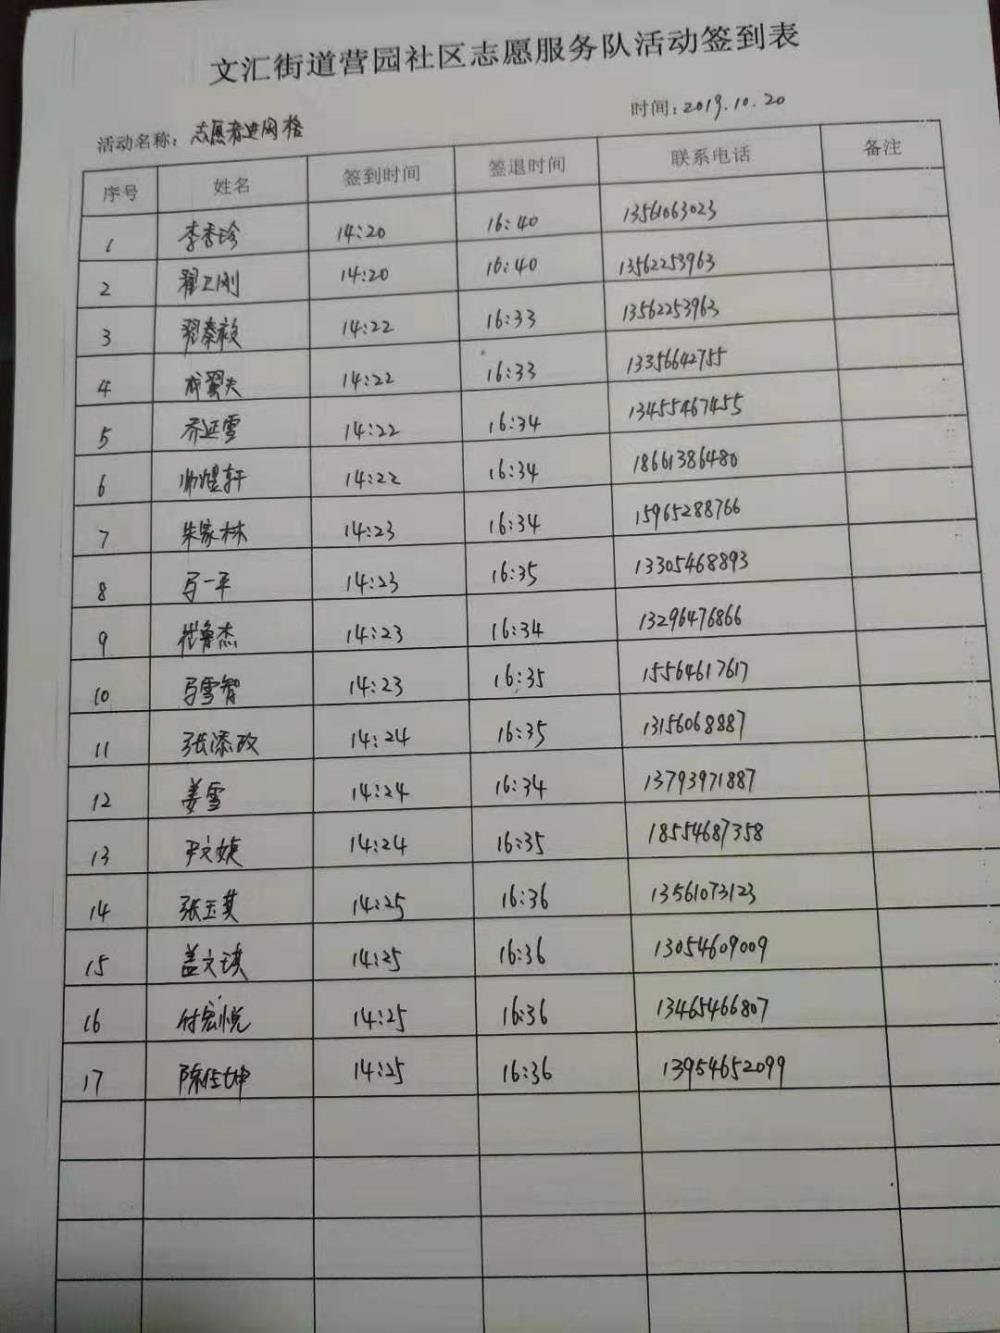 文汇街道营园社区志愿服务队活动签到表
活动名称：志愿者进网格 时间：2019.10.20
序号 姓名 签到时间 签退时间 联系电话 备注
1 李香珍 14:20 16:40 13561063023
2 翟卫刚 14:20 16:40 13562253963
3 14:22 16:33 13562253963
4 14:22 16:33 13356642755
5 14:22 16:34 13455467455
6 14:22 16:34 18661386480
7 朱家林 14:23 16:34 15965288766
8 马一平 14:23 16:35 13305468893
9 崔鲁杰 14:23 16:34 13296476866
10 马雪智 14:23 16:35 15564617617
11 14:24 16:35 13156068887
12 姜雪 14:24 16:34 13793971887
13 14:24 16:35 18554687358
14 张玉莫 14:25 16:36 13561073123
15 盖文琪 14:25 16:36 13054609009
16 付宏悦 14:25 16:36 13465466807
17 14:25 16:36 13954652099